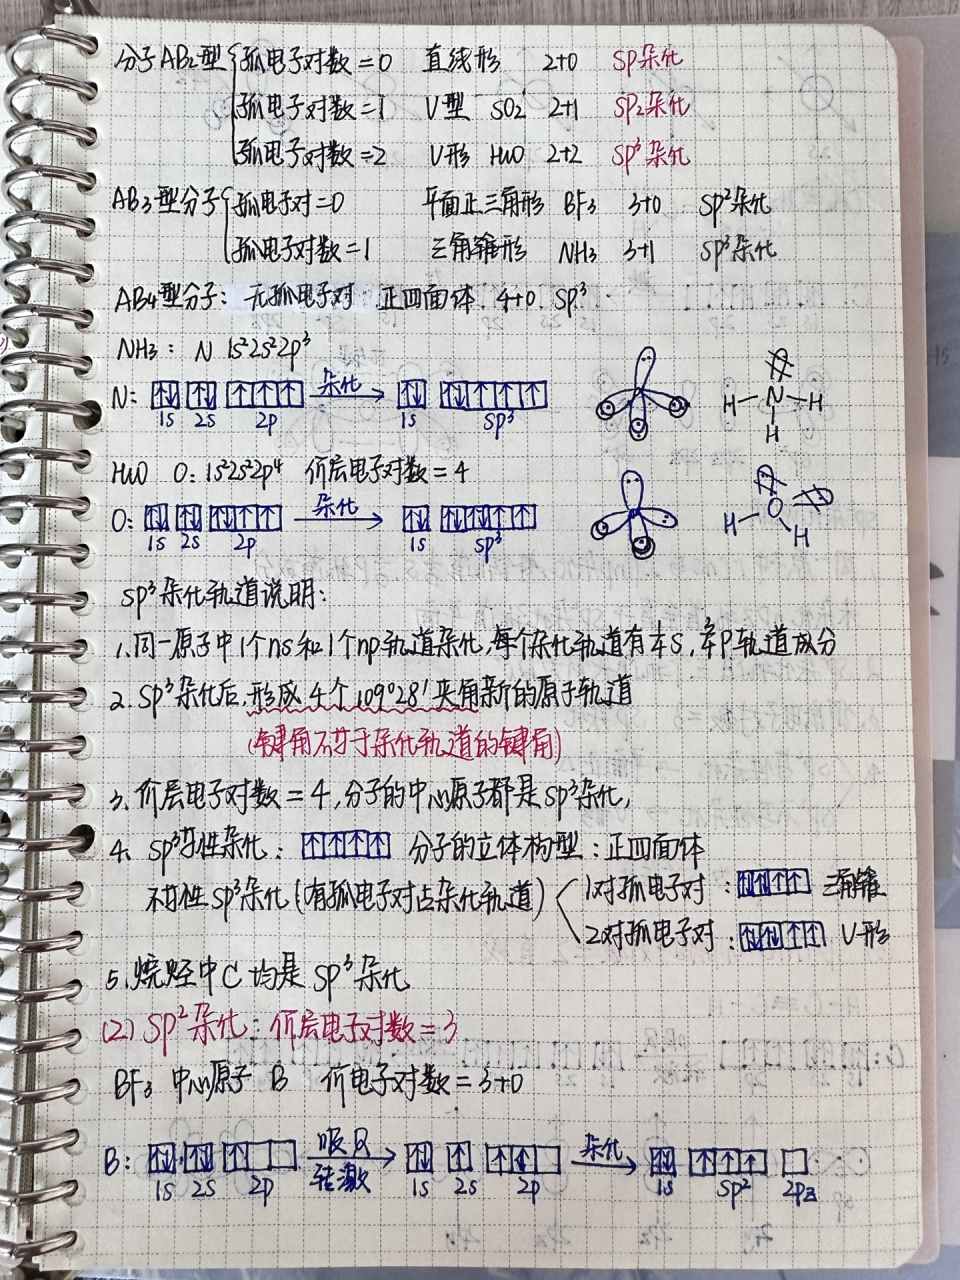 分子AB₂型 孤电子对数=0 直线形 2+0 SP杂化
孤电子对数=1 V型 SO₂ 2+1 SP₂杂化
孤电子对数=2 V形 H₂O 2+2 SP³杂化
AB₃型分子 孤电子对=0 平面正三角形 BF₃ 3+0 SP²杂化
孤电子对数=1 三角锥形 NH₃ 3+1 SP³杂化
AB₄型分子: 无孤电子对 正四面体 4+0 SP³
NH₃: N 1s²2s²2p³
N: ↑↓ ↑↓ ↑↑↑ 杂化 ↑↓ ↑↓↑↑↑
1s 2s 2p 1s SP³
H-N-H
H
H₂O O: 1s²2s²2p⁴ 价层电子对数=4
O: ↑↓ ↑↓ ↑↓↑↑ 杂化 ↑↓ ↑↓↑↓↑↑
1s 2s 2p 1s SP³
H-O
H
SP³杂化轨道说明:
1.同一原子中1个ns和1个np轨道杂化,每个杂化轨道有¼S,¾P轨道成分
2.SP³杂化后,形成4个109°28′夹角新的原子轨道
(键角不等于杂化轨道的键角)
3.价层电子对数=4,分子的中心原子都是SP³杂化,
4、SP³等性杂化: ↑↑↑↑ 分子的立体构型:正四面体
不等性SP³杂化(有孤电子对占杂化轨道) 1对孤电子对: ↑↓↑↑↑ 三角锥
2对孤电子对: ↑↓↑↓↑↑ V形
5.烷烃中C均是SP³杂化
(2) SP²杂化:价层电子对数=3
BF₃ 中心原子 B 价电子对数=3+0
B: ↑↓ ↑↓ ↑ 吸収 激 ↑↓ ↑ 杂化 ↑↓ ↑↑↑
1s 2s 2p 1s 2s 2p 1s SP²